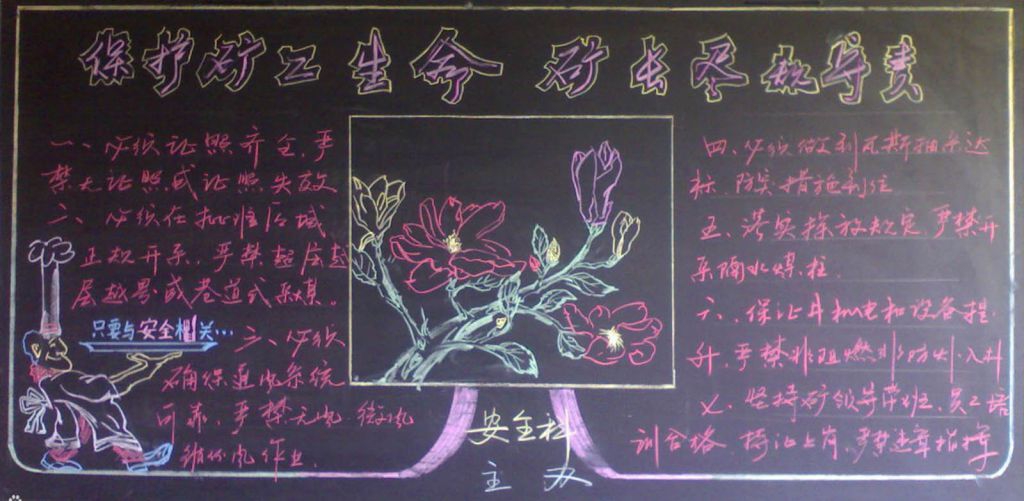 保护矿工生命 矿长尽职尽责
一、必须证照齐全,严
禁无证照或证照失效
二、必须在批准区域
正规开采,严禁超层越
层越界或巷道式采煤。
只要与安全相关…
三、必须
确保通风系统
可靠,严禁无风、微风
循环风作业.
四、必须做到瓦斯抽采达
标,防突措施到位
五、落实探放规定,严禁开
采隔水煤柱.
六、保证井机电和设备提
升,严禁非阻燃非防火入井
七、坚持矿领导带班,员工培
训合格 持证上岗,严禁违章指挥
安全科
主 办